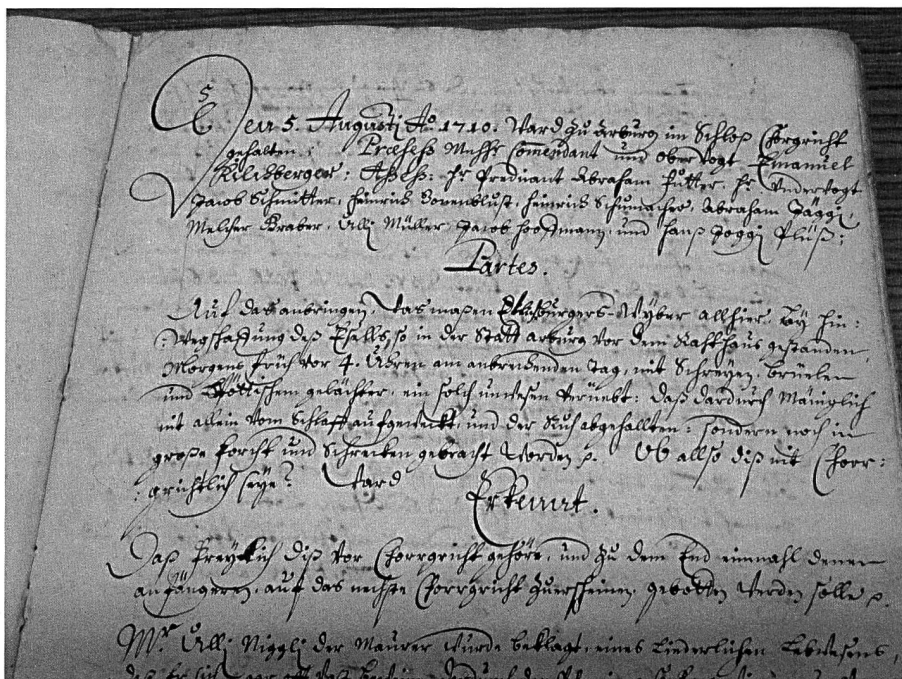 Den 5. Augusti Ao. 1710. Ward zu Arburg im Schloß Chorgricht
gehalten. Præses Mhhr Comendant und obervogt Emanuel
Kilchberger; Assess: Hr Predicant Abraham Hr Undervogt
Jacob Schmitter, Heinrich Bonenblust, Heinrich Schumacher, Abraham Jäggi,
Melcher Graber, Ulli Müller, Jacob Hooffmann, und Hanß Joggi Plüß:
Partes.
Auf das anbringen, was maßen Burgers-Wyber allhier, by hin-
wegschaffung deß so in der Statt arburg vor dem Kaufhaus gestanden,
Morgens früch vor 4. Uhren am anbrechenden Tag, mit Schreyen, brüelen
und gelächter, ein solch unwesen verüebt: daß dardurch Mäniglich
nit allein vom Schlaff aufgeweckt, und der Ruh abgehallten: sondern noch in
große forcht und Schrecken gebracht worden p. Ob allso diß nit Chor-
grichtlich seye? Ward
Erkennt.
Daß freylich diß vor Chorrgricht gehöre, und zu dem End einmahl denen
anfängeren, auf das nechste Chorrgricht zuerscheinen, gebotten werden solle p.
Mr. Ulli Niggli der Maurer wurde beklagt, eines Liederlichen Lebwesens,